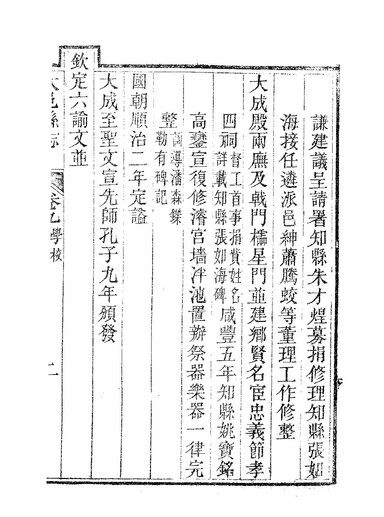 謙建議呈請署知縣朱才煌募捐修理知縣張如
海接任遴派邑紳蕭騰蛟等董理工作修整
大成殿兩廡及戟門櫺星門並建鄉賢名宦忠義節孝
四祠督工首事捐貲姓名詳載知縣張如海碑咸豐五年知縣姚寶銘
高鑾宣復修濬宮墻泮池置辦祭器樂器一律完
整訓導潘森鑅勒有碑記
國朝順治二年定謚
大成至聖文宣先師孔子九年頒發
欽定六諭文並
大邑縣志 卷九 學校 二